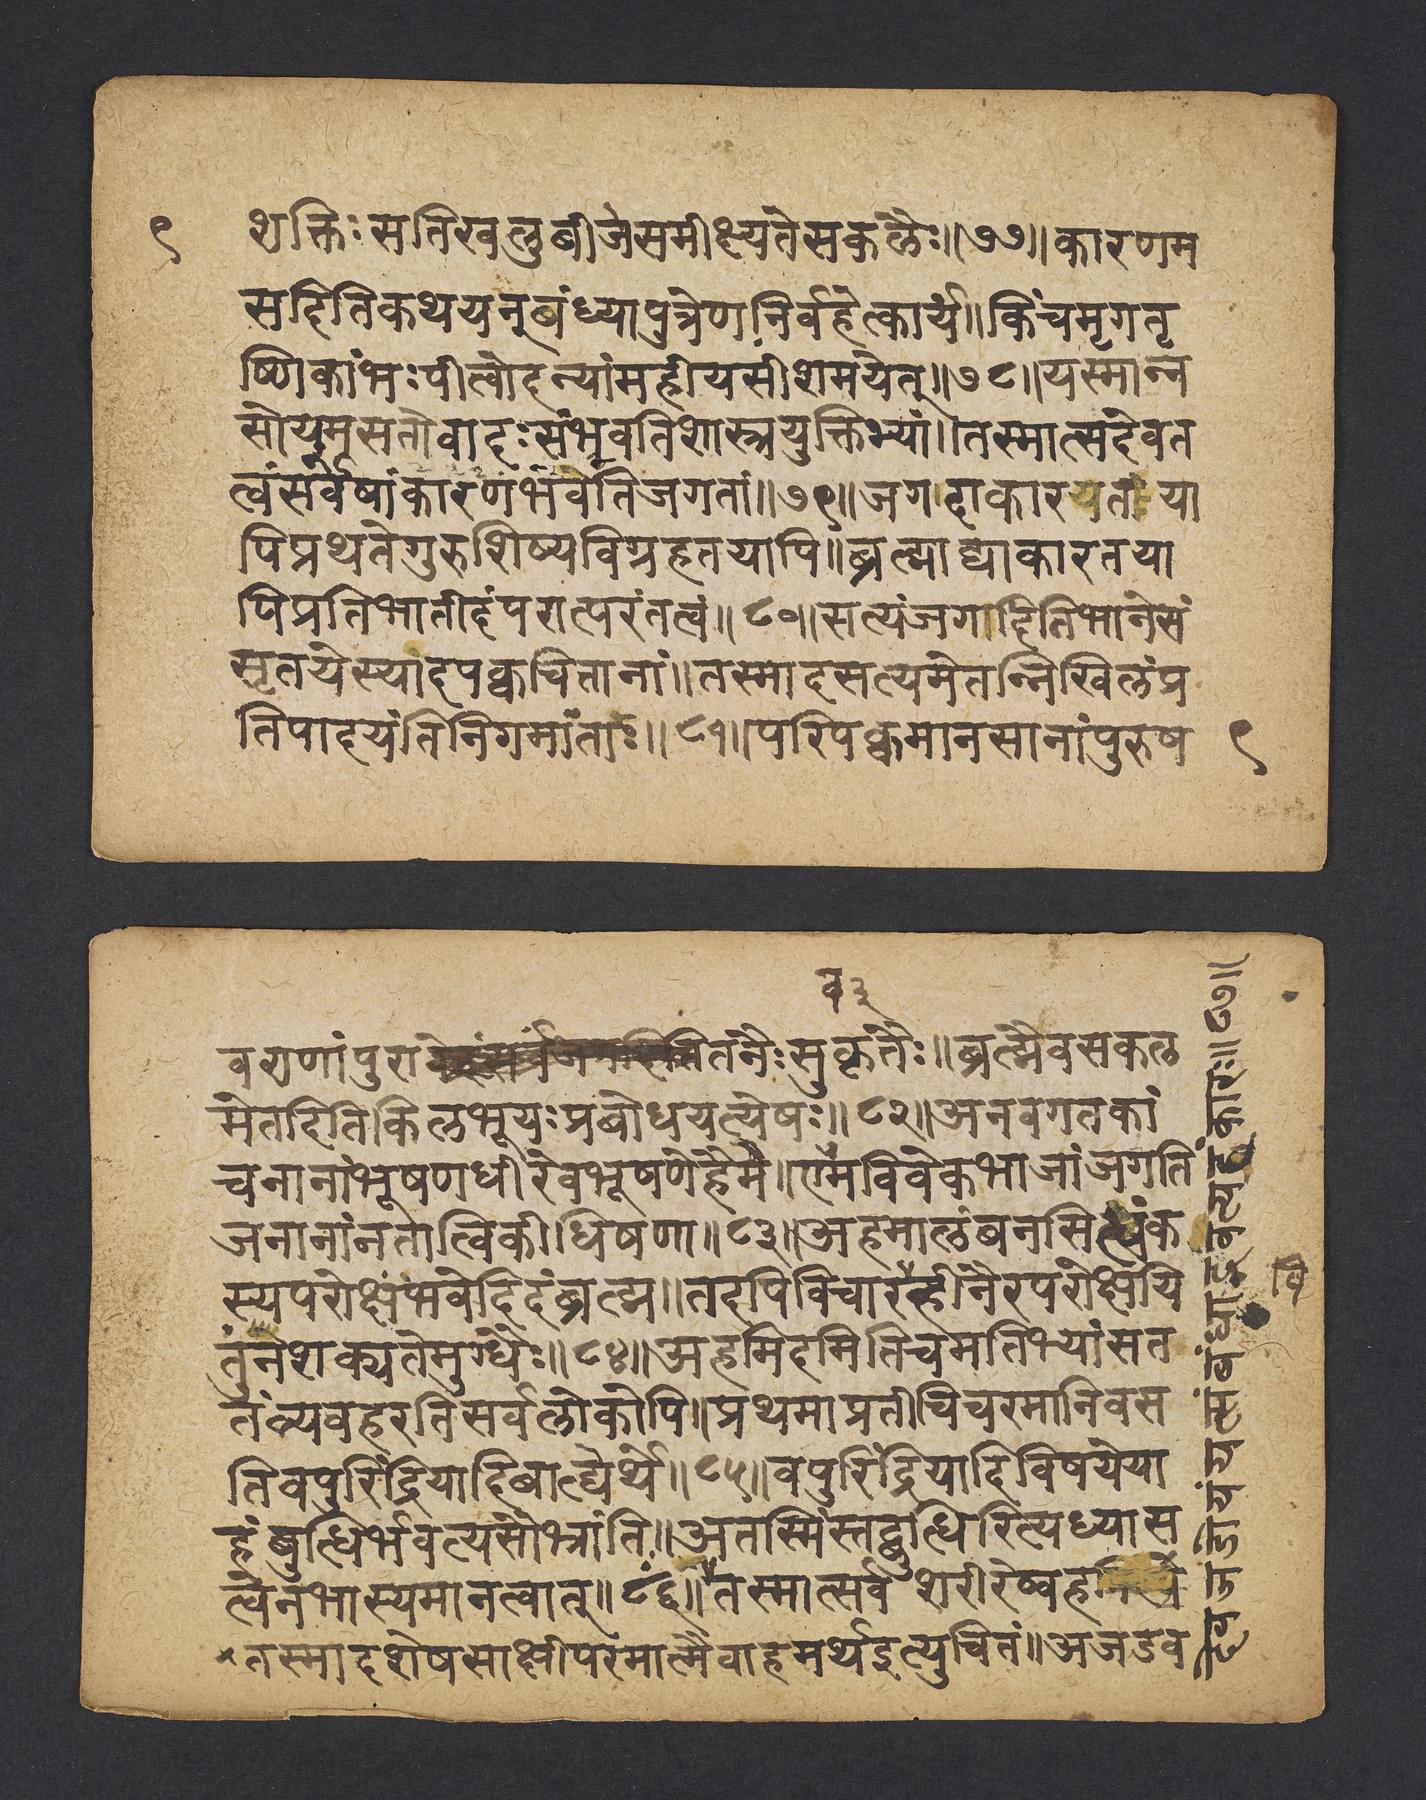 ९
शक्तिः सतिखलुबीजेसमीक्ष्यतेसकलैः॥७७॥कारणम
सदितिकथयन्बंध्यापुत्रेणनिर्वहेत्कार्यं॥किंचमृगतृ
ष्णिकांभःपीत्वोदन्यांमहीयसींशमयेत्॥७८॥यस्मान्न
सोयमसतोवादःसंभवतिशास्त्रयुक्तिभ्यां॥तस्मात्सदेवत
त्वंसर्वेषांकारणंभवेतिजगतां॥७९॥जगदाकारयता या
पिप्रथतेगुरुशिष्यविग्रहतयापि॥ब्रह्माद्याकारतया
पिप्रतिभातीदंपरात्परंतत्वं॥८०॥सत्यंजगादितिभानेसं
सृतयेस्यादपक्वचित्तानां॥तस्मादसत्यमेतन्निखिलंप्र
तिपादयंतिनिगमांताः॥८१॥परिपक्वमानसानांपुरुष
९
व३
वराणांपुरातनैःसुकृतैः॥ब्रह्मैवसकल
मेतदितिकिलभूयःप्रबोधयत्येषः॥८२॥अनवगतकां
चनानांभूषणधीरेवभूषणेहैमे॥एमविवेकभाजांजगति
जनानांनतात्विकीधिषणा॥८३॥अहमालंबनसित्धंक
स्यपरोक्षंभवेदिदंब्रह्म॥तदपिविचारहीनैरपरोक्षयि
तुंनशक्यतेमुग्धैः॥८४॥अहमिदमितिचमतिभ्यांसत
तंव्यवहरतिसर्वलोकोपि॥प्रथमाप्रतीचिचरमानिवस
तिवपुरिंद्रियादिबाह्येर्थे॥८५॥वपुरिंद्रियादिविषयेया
हंबुत्धिर्भवत्यसौभ्रांति॥अतस्मिंस्तद्बुत्धिरित्यध्यास
त्वेनभास्यमानत्वात्॥८६॥तस्मात्सर्वशरीरेष्वह
तस्मादशेषसाक्षीपरमात्मैवाहमर्थइत्युचितं॥अजडव